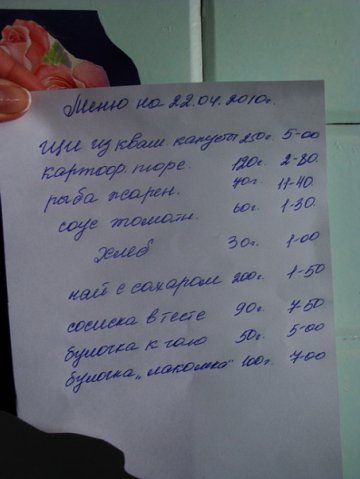 Меню на 22.04.2010г.
щи из квап. капусты 250г. 5-00
картоф. пюре. 120г. 2-80.
рыба жарен. 70г. 11-40.
соус томатн. 60г. 1-30
хлеб 30г. 1-00
чай с сахаром 200г. 1-50
сосиска в тесте 90г. 7-50
булочка к чаю 50г. 5-00
булочка „лакомка" 100г. 7-00